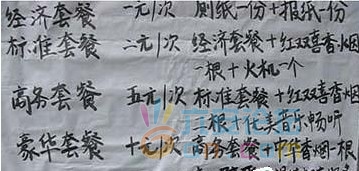 经济套餐 一元/次 厕纸一份+报纸一份
标准套餐 二元/次 经济套餐+红双喜香烟
一根+火机一个
商务套餐 五元/次 标准套餐+红双喜香烟
一根+优美音乐畅听
豪华套餐 十元/次 商务套餐+中华香烟一根